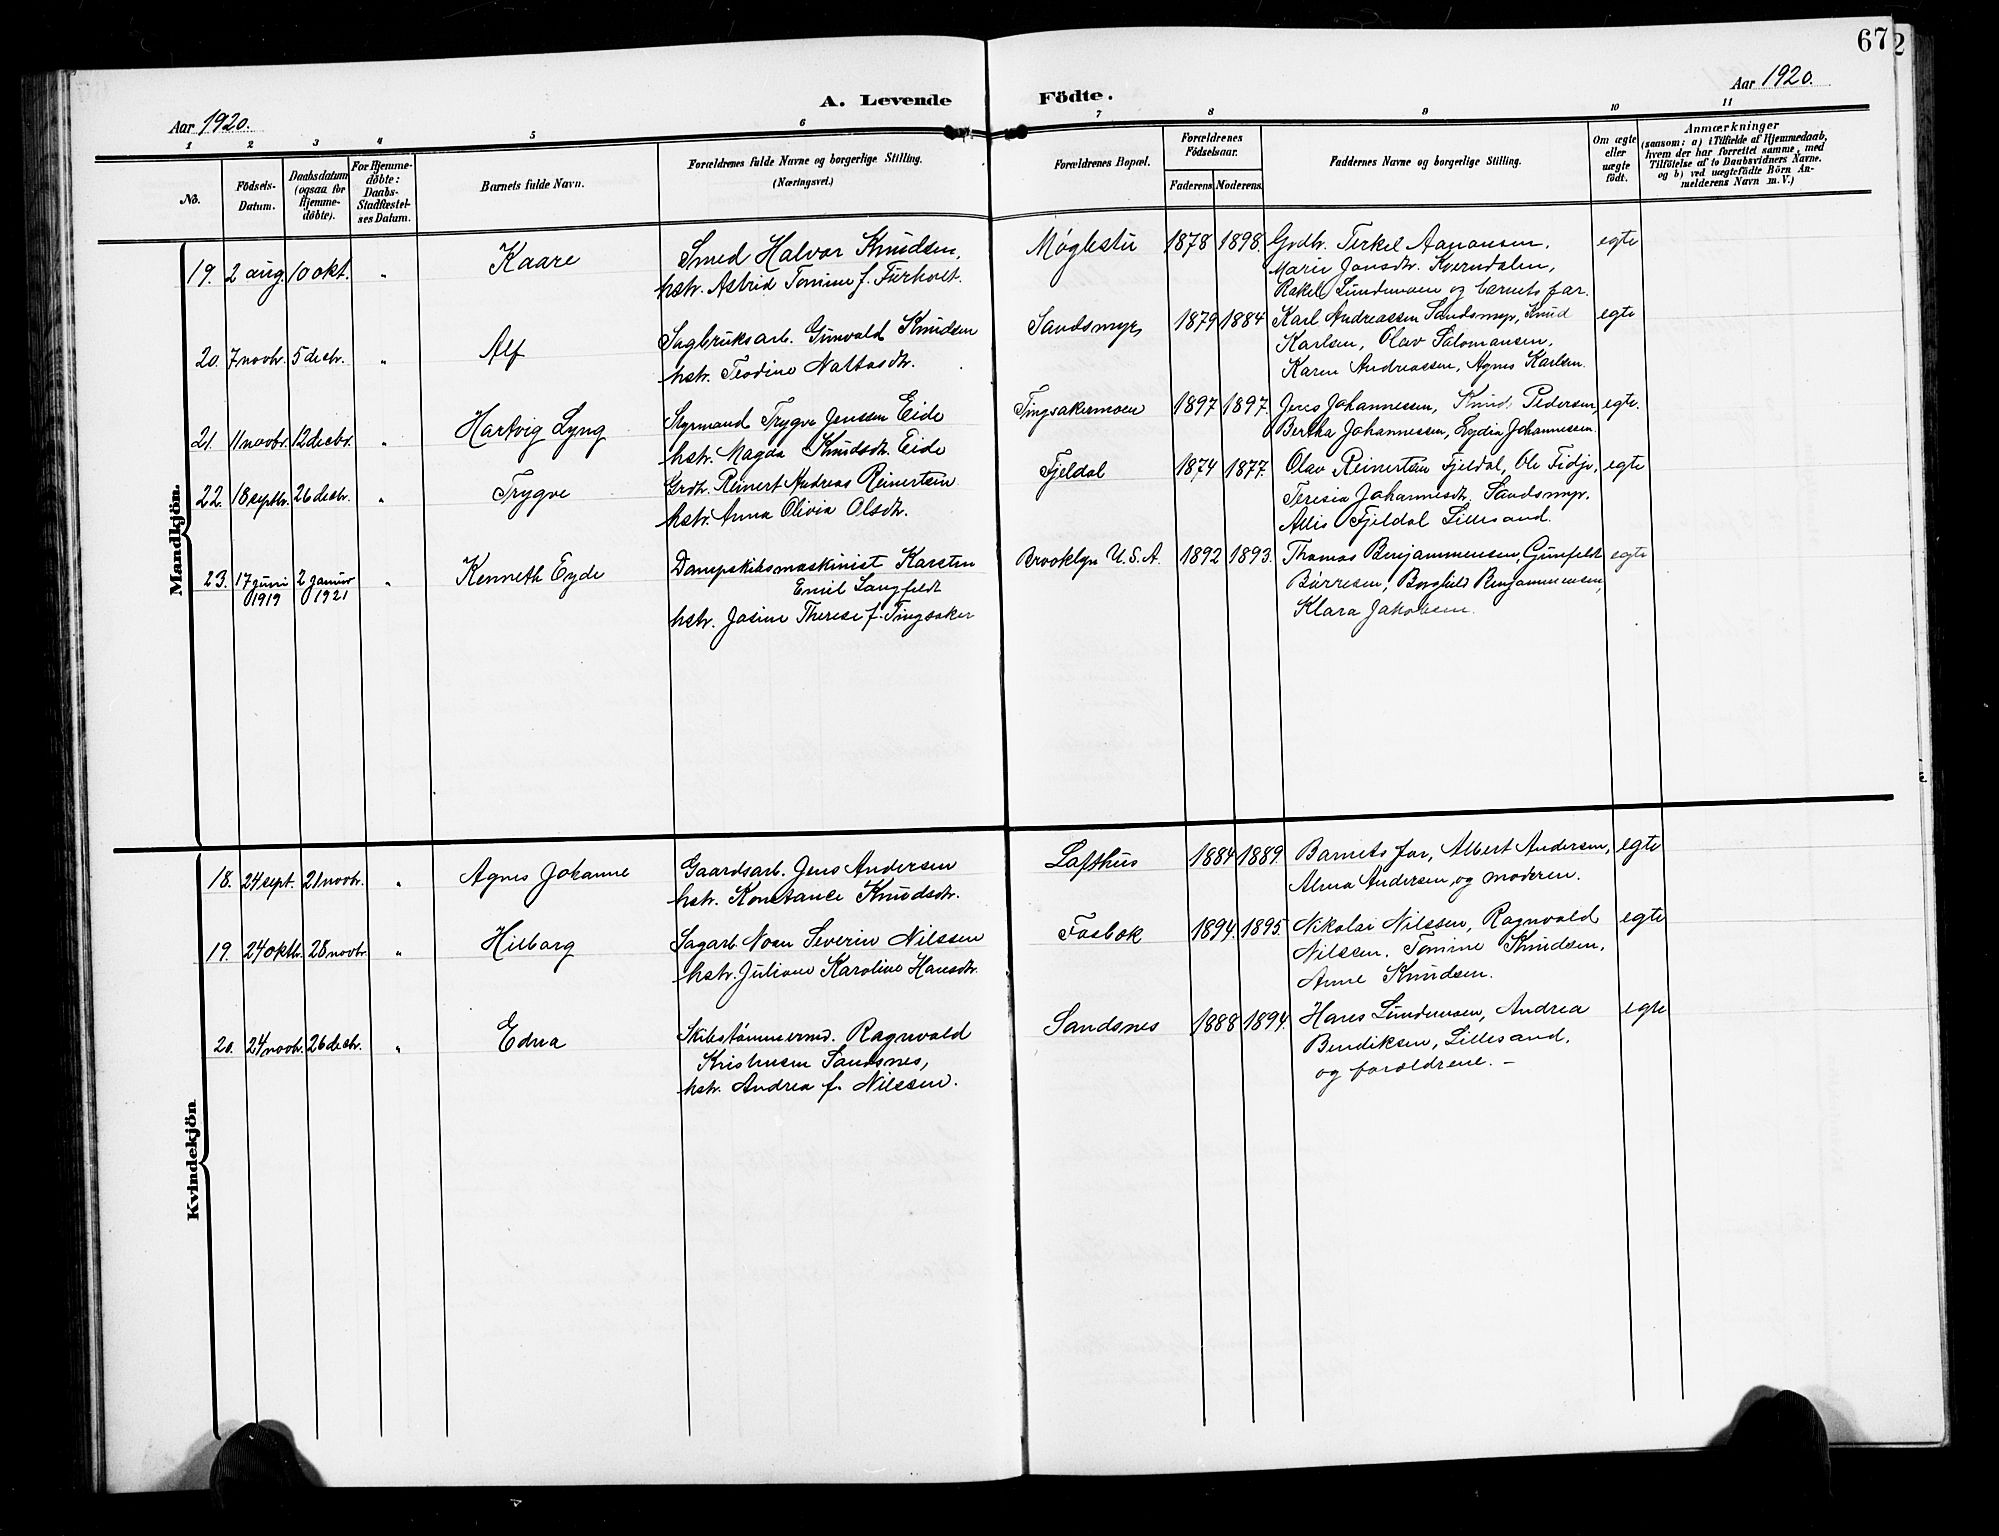 67
2
Aar 1920.
A. Levende Födte.
Aar 1920.
1 2 3 4 5 6 7 8 9 10 11
No.
Födsels-
Datum.
Daabsdatum
(ogsaa for
Hjemme-
döbte).
For Hjemme-
döbte:
Daabs-
Stadfæstel-
ses Datum.
Barnets fulde Navn.
Forældrenes fulde Navne og borgerlige Stilling.
(Næringsvei.)
Forældrenes Bopæl.
Forældrenes
Födselsaar.
Faderens. Moderens.
Faddernes Navne og borgerlige Stilling.
Om ægte
eller
uægte
födt.
Anmærkninger
(saasom: a) i Tilfælde af Hjemmedaab,
hvem der har forrettet samme, med
Tilföielse af to Daabsvidners Navne.
og b) ved uægtefödte Börn An-
melderens Navn m. V.)
Mandkjön.
19. 2 aug. 10 okt. " Kaare
Smed Halvor Knudsen,
hstr. Astrid Tomine f. Furholt.
Møglestu 1878 1898.
Grdbr. Terkel Aanonsen,
Marie Jonsdtr. Kverndalen,
Rakel Lundemoen og barnets far.
egte
20. 7 novbr. 5 decbr. " Alf
Sagbruksarb. Gunvald Knudsen
hstr. Teodine Naltasdtr.
Sandsmyr 1879 1884
Karl Andreassen Sandsmyr, Knud
Karlsen, Olav Salomonsen,
Karen Andreassen, Agnes Karlsen.
egte
21. 11 novbr. 12 decbr. " Hartvig Lyng
Styrmand Trygve Jenssen Eide
hstr. Magda Knudsdtr. Eide
Tingsakermoen 1897 1897.
Jens Johannessen, Knud Pedersen,
Bertha Johannessen, Lydia Johannessen
egte.
22. 18 septbr. 26 decbr. " Trygve
Grdbr. Reinert Andreas Reinertsen
hstr. Anna Olivia Olsdtr.
Fjeldal 1874 1877.
Olav Reinertsen Fjeldal, Ole Fidje,
Teresia Johannesdtr. Sandsmyr.
Allis Fjeldal Lillesand.
egte
23. 17 juni 1919 2 januar 1921 " Kenneth Eyde
Dampskibsmaskinist Karsten
Emil Langfeldt
hstr. Josine Therese f. Tingsaker
Brooklyn U.S.A. 1892 1893.
Thomas Benjammensen, Gunfeld
Børresen, Borghild Benjammensen,
Klara Jakobsen.
egte
Kvindekjön
18. 24 sept. 21 novbr. " Agnes Johanne
Gaardsarb. Jens Andersen
hstr. Konstance Knudsdtr.
Lofthus 1884 1889.
Barnets far, Albert Andersen,
Alma Andersen, og moderen.
egte
19. 24 oktbr. 28 novbr. " Hilborg
Sagarb. Noan Severin Nilssen
hstr. Juliane Karoline Hansdtr.
Fosbæk 1894. 1895.
Nikolai Nilssen, Ragnvald
Nilssen. Tomine Knudsen,
Anne Knudsen.
egte
20. 24 novbr. 26 decbr. " Edna
Skibstømmermd. Ragnvald
Kristensen Sandsnes,
hstr. Andrea f. Nilssen.
Sandsnes 1888 1894.
Hans Lundemoen, Andrea
Bendiksen, Lillesand,
og forældrene. –
egte